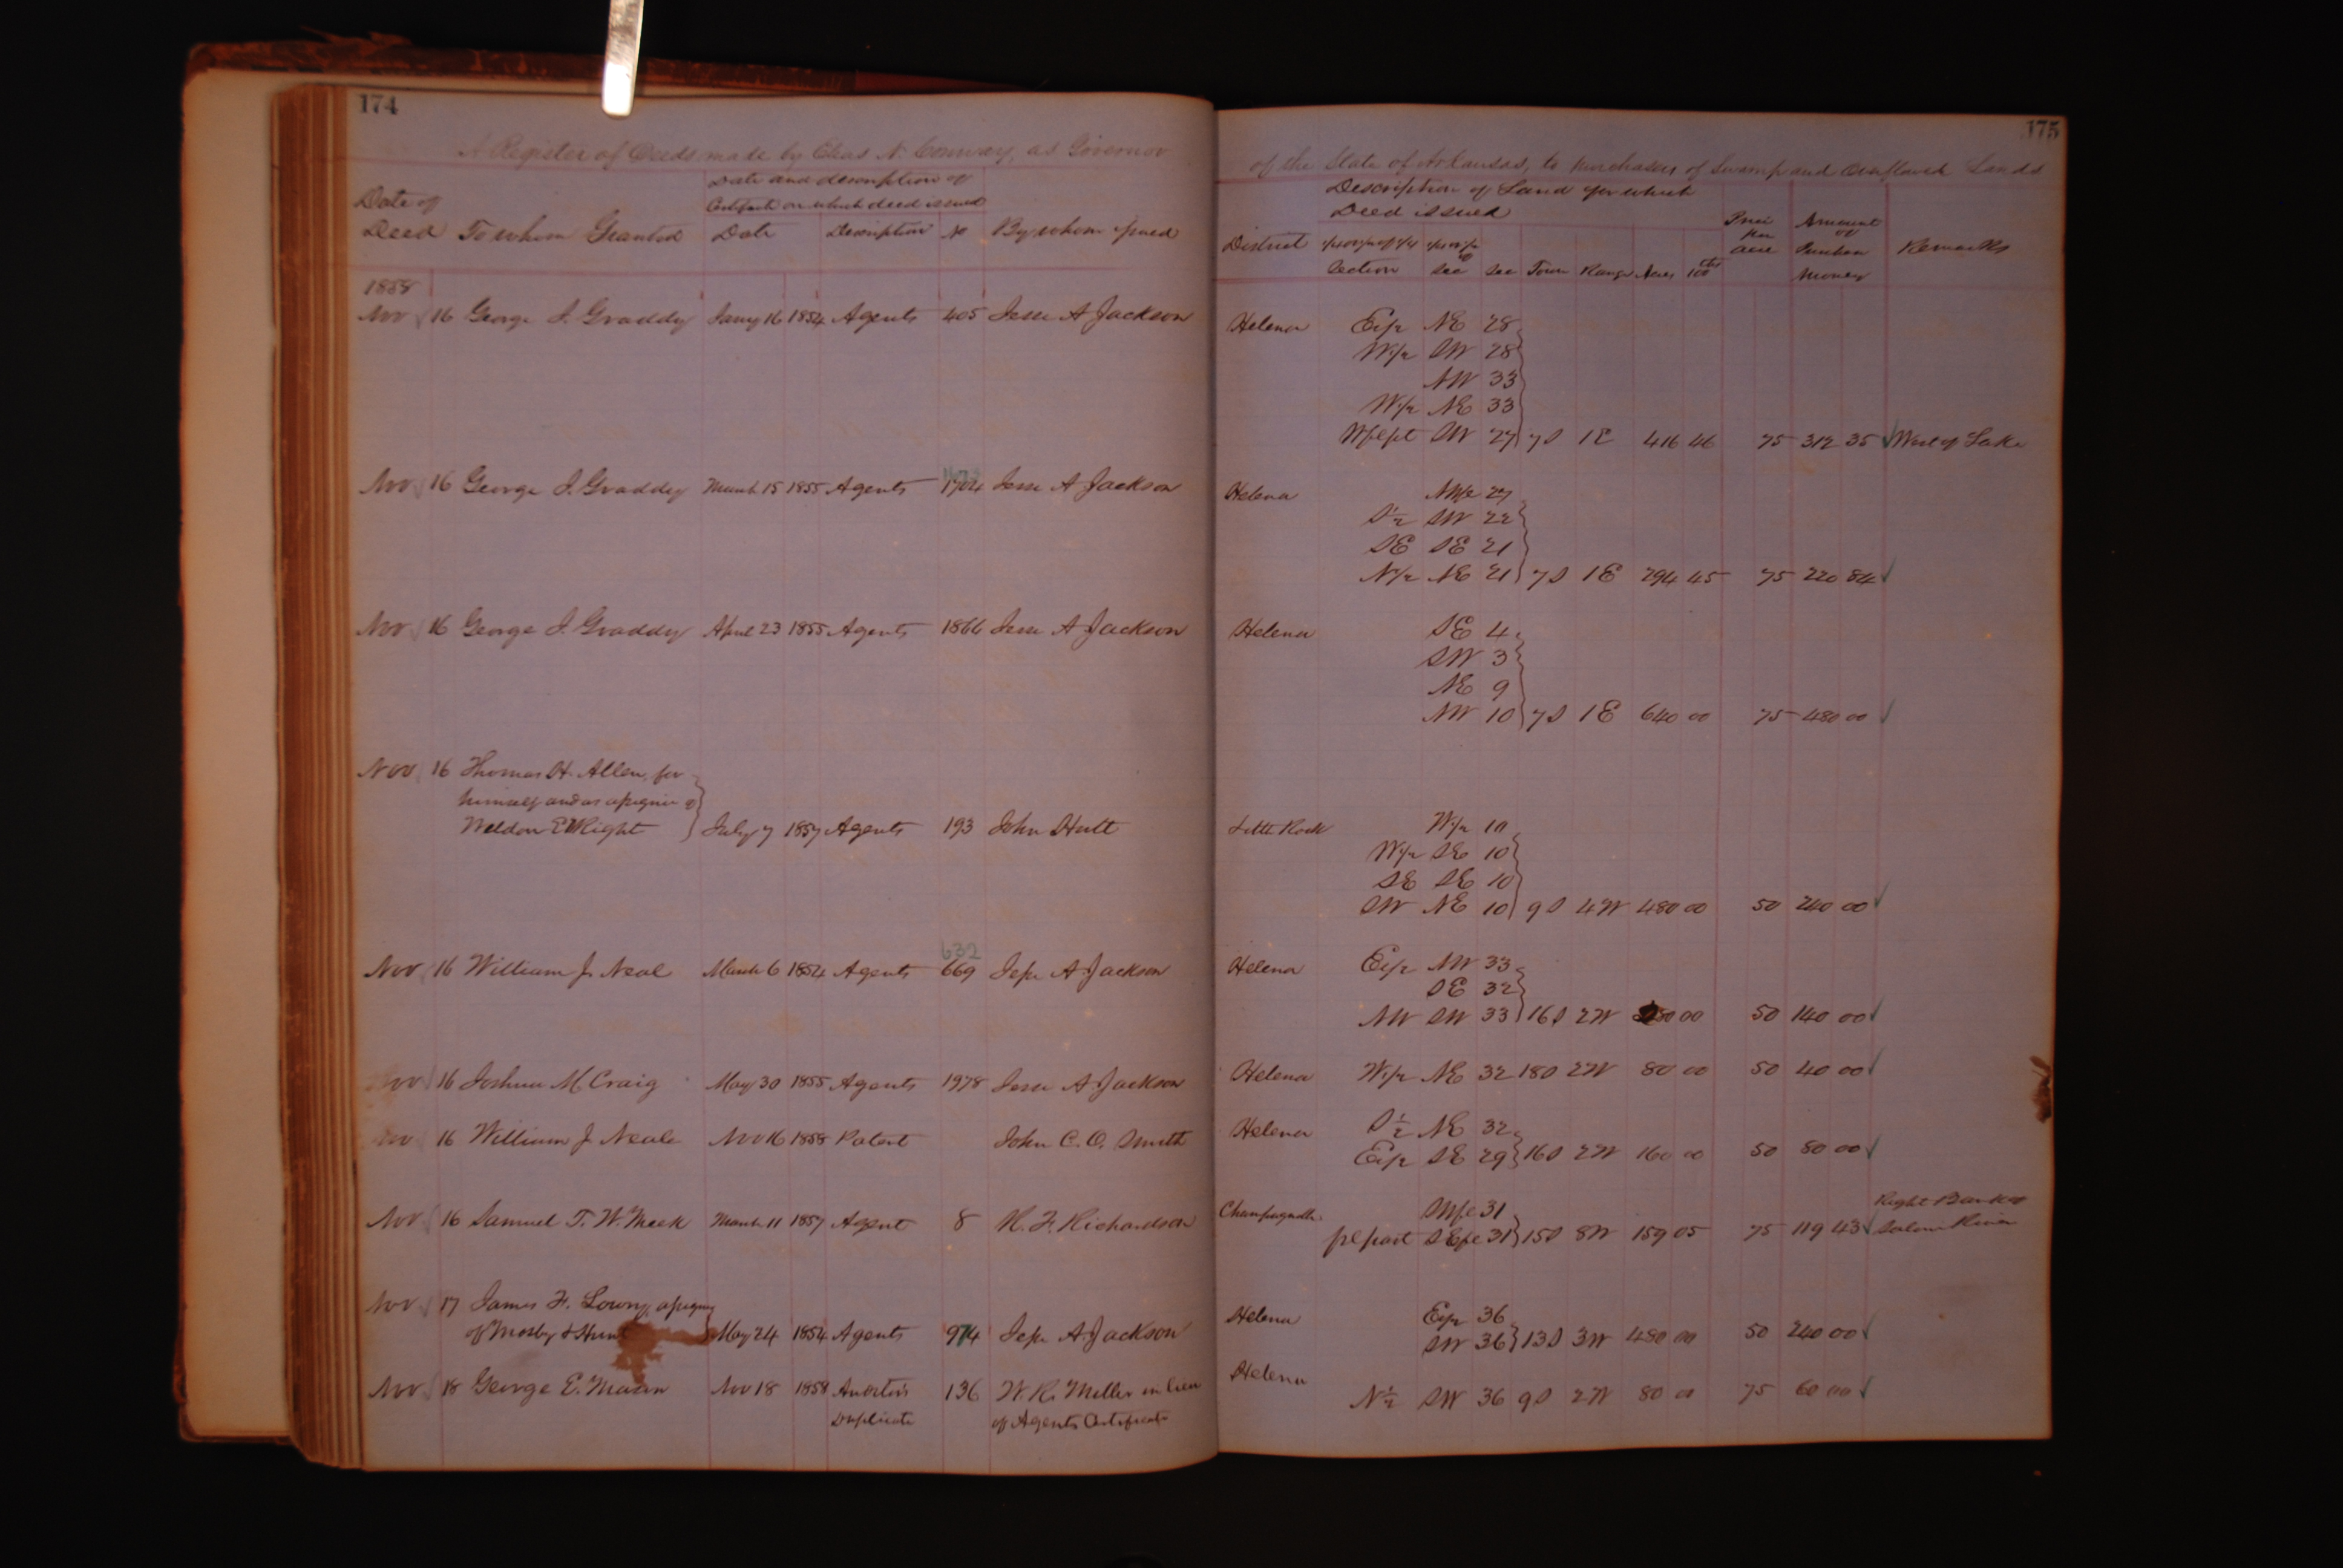 174
A Register of Deeds made by Elias N. Conway, as Governor
Date of Deed To whom Granted
Date and description of Certificate on which deed issued
Date Description No By whom issued
1858
Nov 16 George J. Graddy Jany 16 1854 Agents 405 Jesse A Jackson
Nov 16 George J. Graddy March 15 1855 Agents 1704 Jesse A Jackson
Nov 16 George J. Graddy April 23 1855 Agents 1866 Jesse A Jackson
Nov 16 Thomas H. Allen, for
himself and as assignee of
Weldon E Wright July 7 1857 Agents 193 John Hult
632
Nov 16 William J. Neal March 6 1854 Agents 669 Jesse A Jackson
Nov 16 Joshua M Craig May 30 1855 Agents 1978 Jesse A Jackson
Nov 16 William J Neale Nov 16 1858 Patent John C. O. Smith
Nov 16 Samuel T. W. Meek March 11 1857 Agent 8 H. F. Richardson
Nov 17 James F. Lowry, assignee
of Mosby & Hunt May 24 1854 Agents 974 Jesse A. Jackson
Nov 18 George E. Mason Nov 18 1858 Auditor's 136 W. R. Miller in lieu
Duplicate of Agents Certificate
175
of the State of Arkansas, to purchasers of Swamp and Overflowed Lands
Description of Land for which
Deed issued
District Section Sec Sec Town Range Acres 100ths
Price per acre
Amount of Purchase Money
Remarks
Helena E1/2 NE 28
W1/2 SW 28
NW 33
W1/2 NE 33
W pt SW 27 7S 1E 416 46 75 312 35 West of Lake
Helena NW 27
S½ SW 22
SE SE 21
N1/2 NE 21 7S 1E 294 45 75 220 84
Helena SE 4
SW 3
NE 9
NW 10 7S 1E 640 00 75 480 00
Little Rock W1/2 10
W1/2 SE 10
SE SE 10
SW NE 10 9S 4W 480 00 50 240 00
Helena E1/2 NW 33
SE 32
NW SW 33 16S 2W 280 00 50 140 00
Helena W1/2 NE 32 18S 2W 80 00 50 40 00
Helena S½ NE 32
E1/2 SE 29 16S 2W 160 00 50 80 00
Champagnolle SW 31 Right Bank of
part SE 31 15S 8W 159 05 75 119 43 Saline River
Helena E1/2 36
SW 36 13S 3W 480 00 50 240 00
Helena
N½ SW 36 9S 2W 80 00 75 60 00